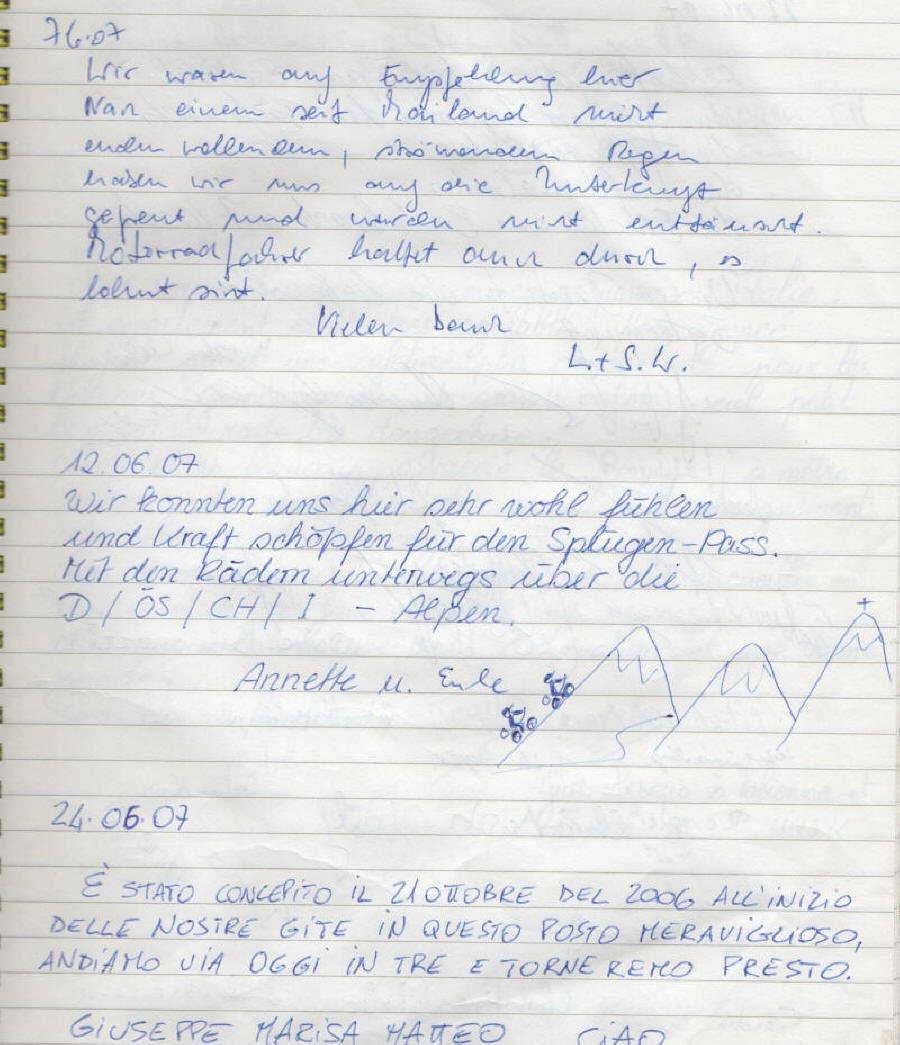 7.6.07
Wir waren auf Empfehlung hier
Nach einem seit Mailand nicht
enden wollendem, strömendem Regen
haben wir uns auf die Unterkunft
gefreut und wurden nicht enttäuscht.
Motorradfahrer haltet auch durch, es
lohnt sich.
Vielen Dank
L+S.W.
12.06.07
Wir konnten uns hier sehr wohl fühlen
und Kraft schöpfen für den Splügen-Pass.
Mit den Rädern unterwegs über die
D/ÖS/CH/I - Alpen.
Annette u. Eule
24.06.07
È STATO CONCEPITO IL 21 OTTOBRE DEL 2006 ALL'INIZIO
DELLE NOSTRE GITE IN QUESTO POSTO MERAVIGLIOSO,
ANDIAMO VIA OGGI IN TRE E TORNEREMO PRESTO.
GIUSEPPE MARISA MATTEO CIAO